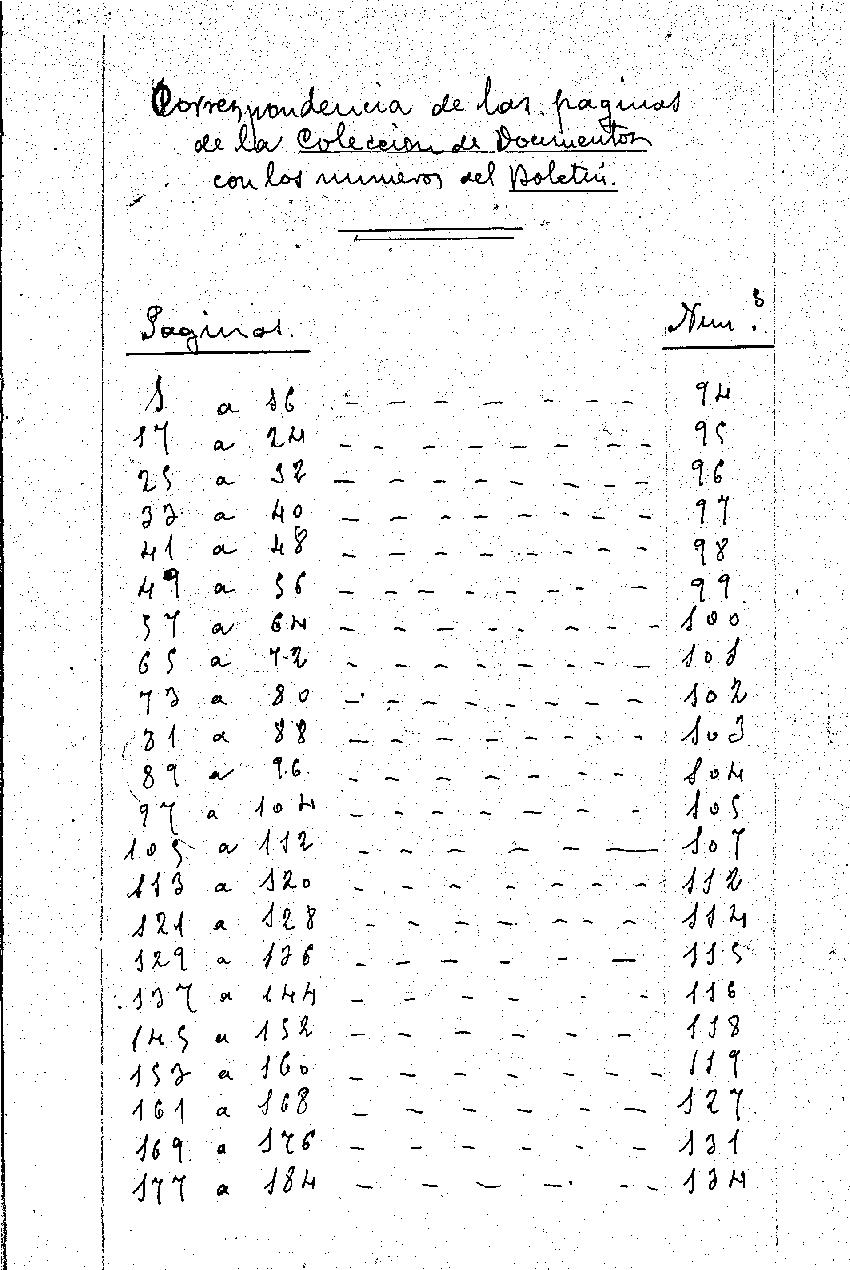 Correspondencia de las paginas
de la Coleccion de Documentos
con los numeros del Boletin.
Paginas. Num.s
1 a 16 — — — — — — — 94
17 a 24 — — — — — — — — 95
25 a 32 — — — — — — — — 96
33 a 40 — — — — — — — — 97
41 a 48 — — — — — — — — 98
49 a 56 — — — — — — — — 99
57 a 64 — — — — — — — — 100
65 a 72 — — — — — — — — 101
73 a 80 — — — — — — — — 102
81 a 88 — — — — — — — — 103
89 a 96 — — — — — — — 104
97 a 104 — — — — — — — 105
105 a 112 — — — — — — — 107
113 a 120 — — — — — — — — 112
121 a 128 — — — — — — — — 114
129 a 136 — — — — — — — 115
137 a 144 — — — — — — — 116
145 a 152 — — — — — — — 118
153 a 160 — — — — — — — — 119
161 a 168 — — — — — — — 127
169 a 176 — — — — — — — 131
177 a 184 — — — — — — — 134